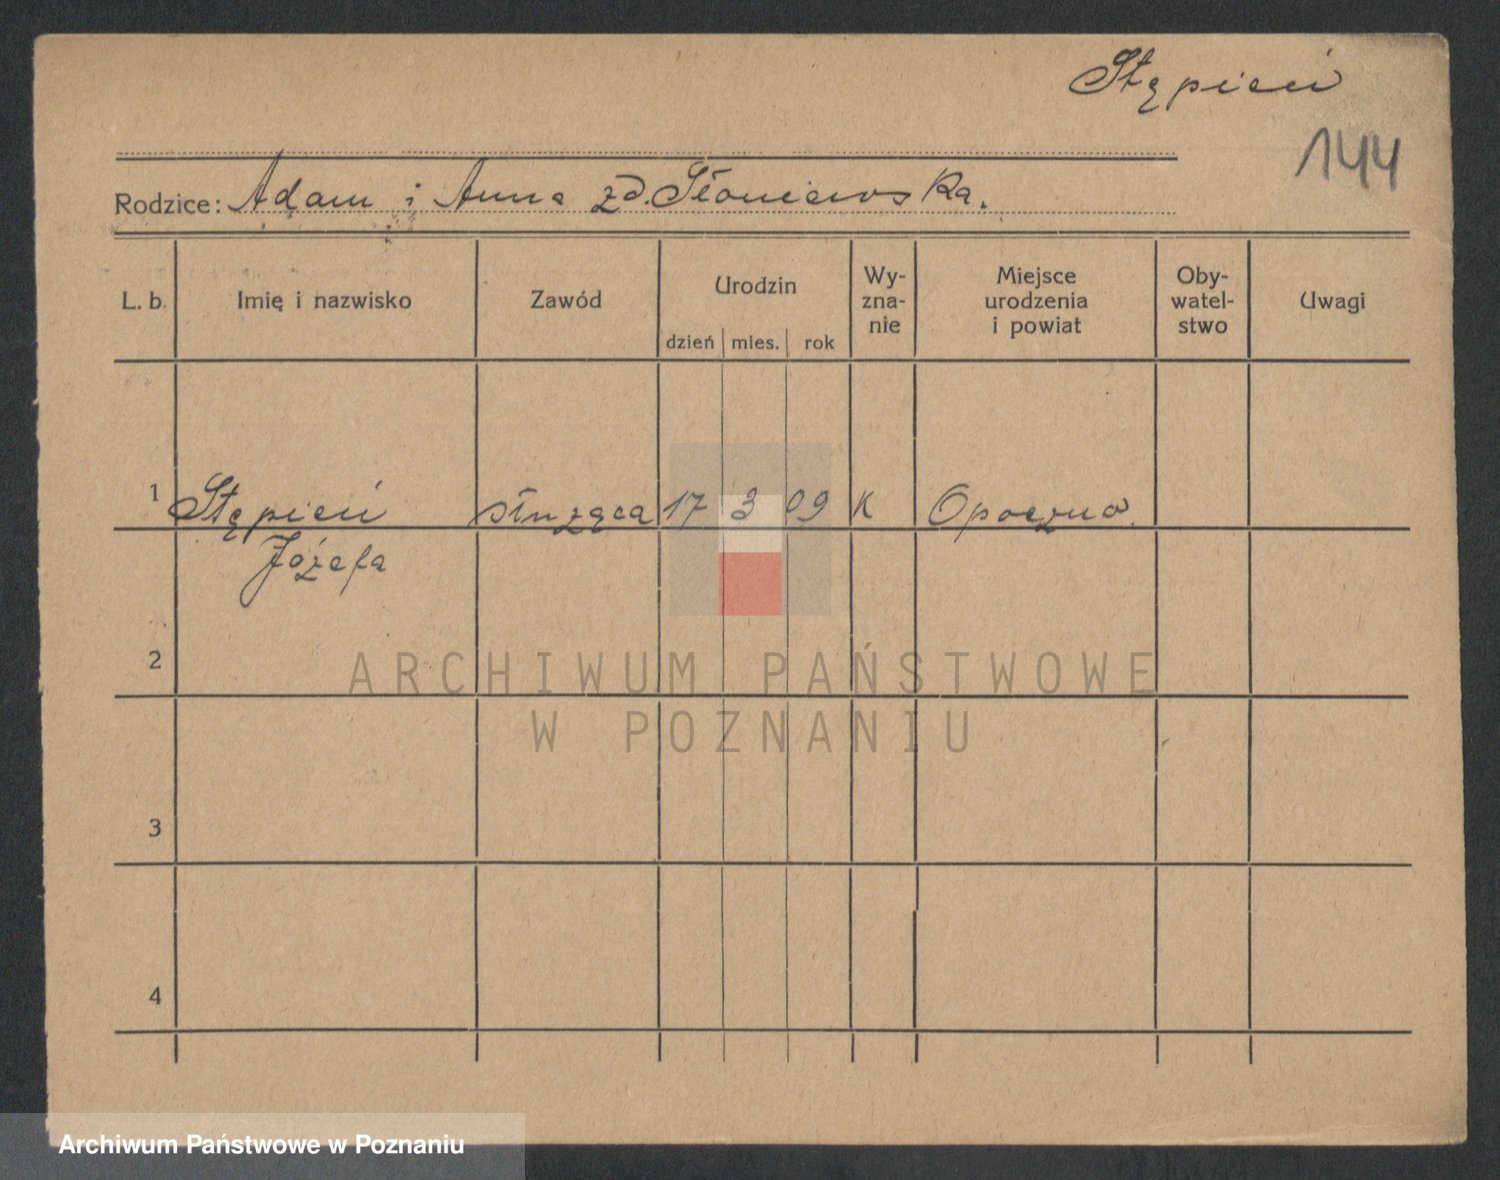 Stępień
144
Rodzice: Adam i Anna zd. Słoniewska.
L. b. Imię i nazwisko Zawód Urodzin Wy-zna-nie Miejsce urodzenia i powiat Oby-watel-stwo Uwagi
dzień mies. rok
1 Stępień służąca 17 3 09 K Opoczno
Józefa
2
ARCHIWUM PAŃSTWOWE
W POZNANIU
3
4
Archiwum Państwowe w Poznaniu